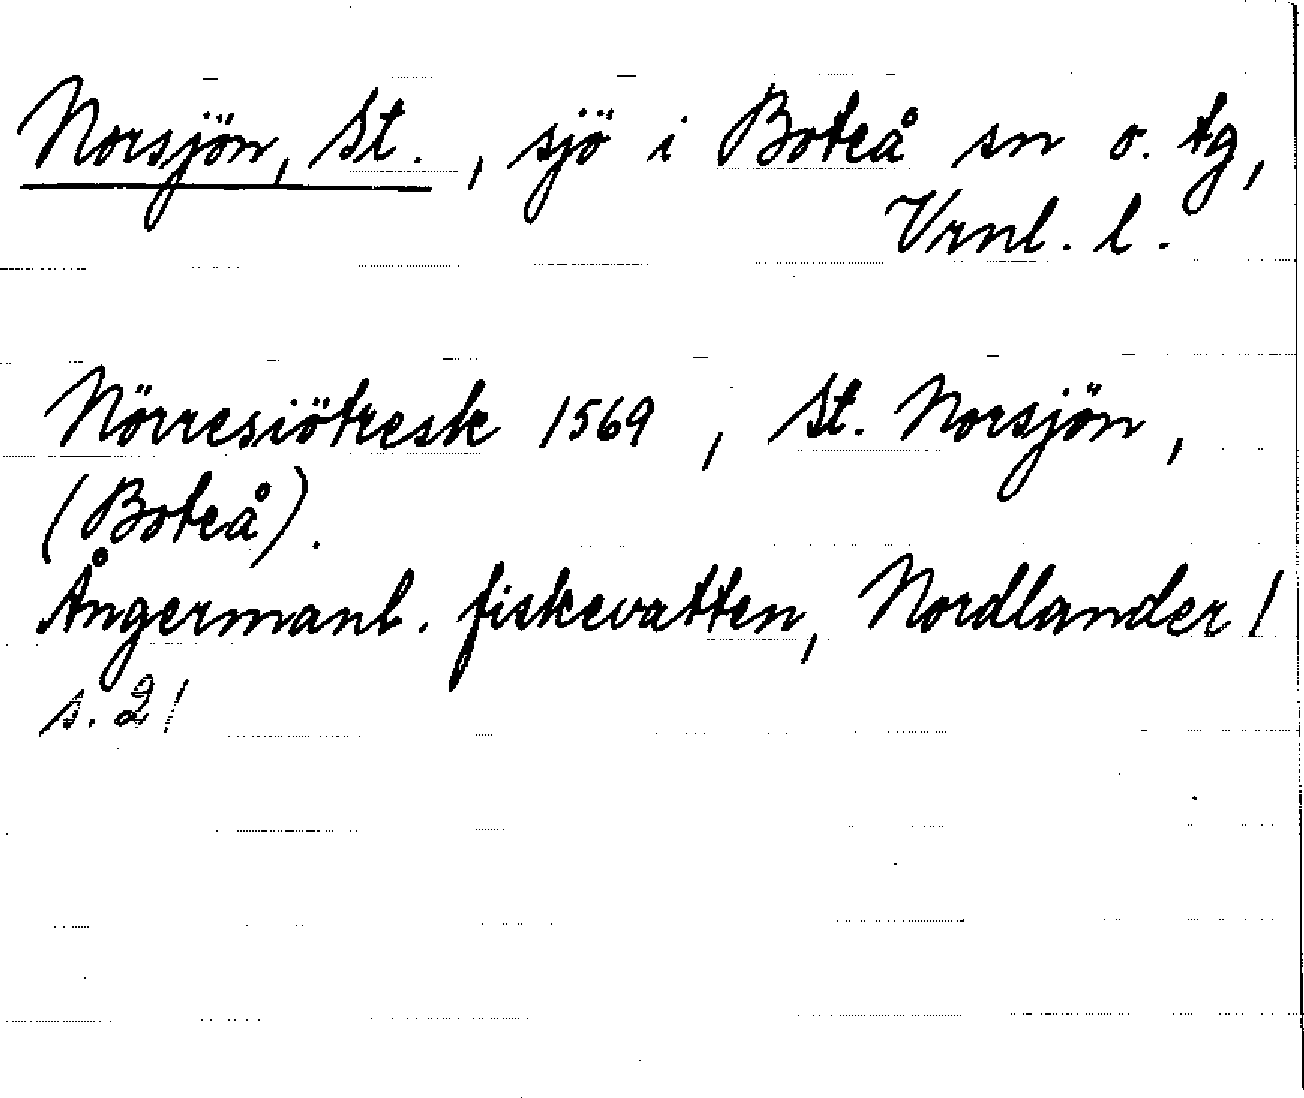 Norsjön, St. , sjö i Boteå sn o. tg,
Vrnl. l.
Nörresiöträsk 1569 , St. Norsjön ,
(Boteå).
Ångermanl. fiskevatten, Nordlander /
s. 21